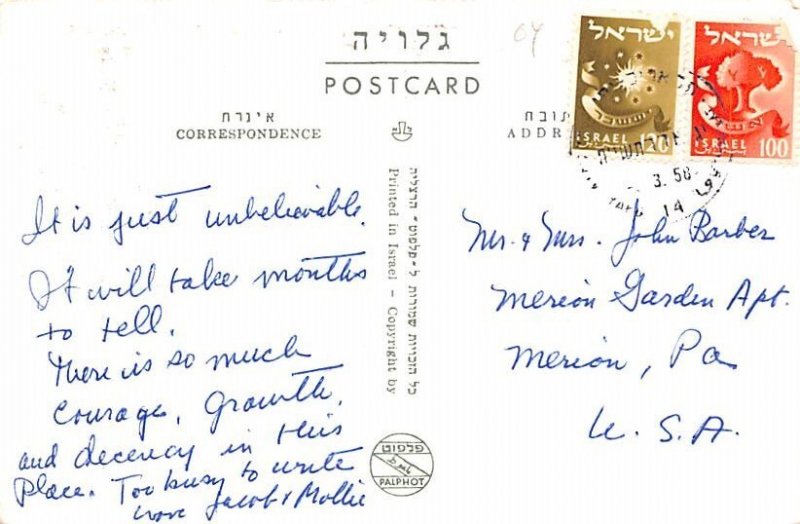 גלויה
POSTCARD
אינרת
CORRESPONDENCE
It is just unbelievable.
It will take months
to tell.
There is so much
Courage, Growth,
and decency in this
Place. Too busy to write
Love Jacob & Mollie
כל הזכויות שמורות ל-פלפוט - הרצליה
Printed in Israel - Copyright by
פלפוט
PALPHOT
04
ישראל
ISRAEL 120
ישראל
ISRAEL 100
תובת
ADDR
3.58
14
Mr. & Mrs. John Barber
Merion Garden Apt.
Merion, Pa
U. S. A.